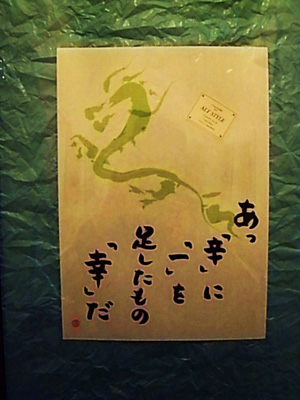 あっ
「辛」に
「一」を
足したもの
「幸」だ
ALL STYLE